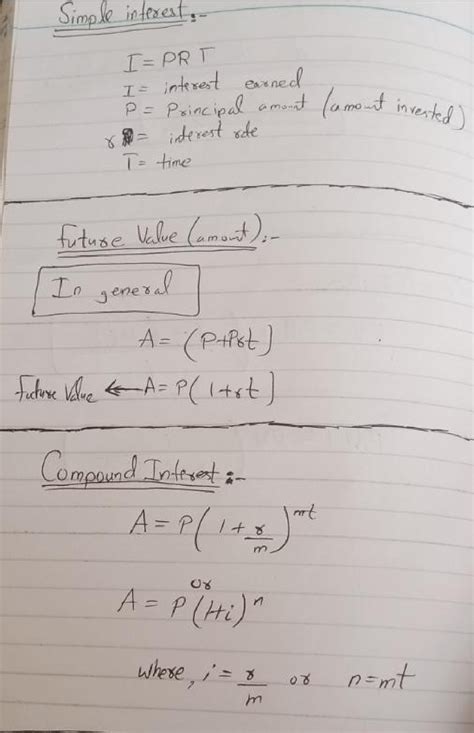 Simple interest:-
I = PRT
I = interest earned
P = Principal amount (amount invested)
r = interest rate
T = time
Future Value (amount):-
In general
A = (P+Prt)
Future Value ← A = P(1+rt)
Compound Interest:-
A = P(1 + r/m)^mt
or
A = P(1+i)^n
where, i = r/m or n = mt